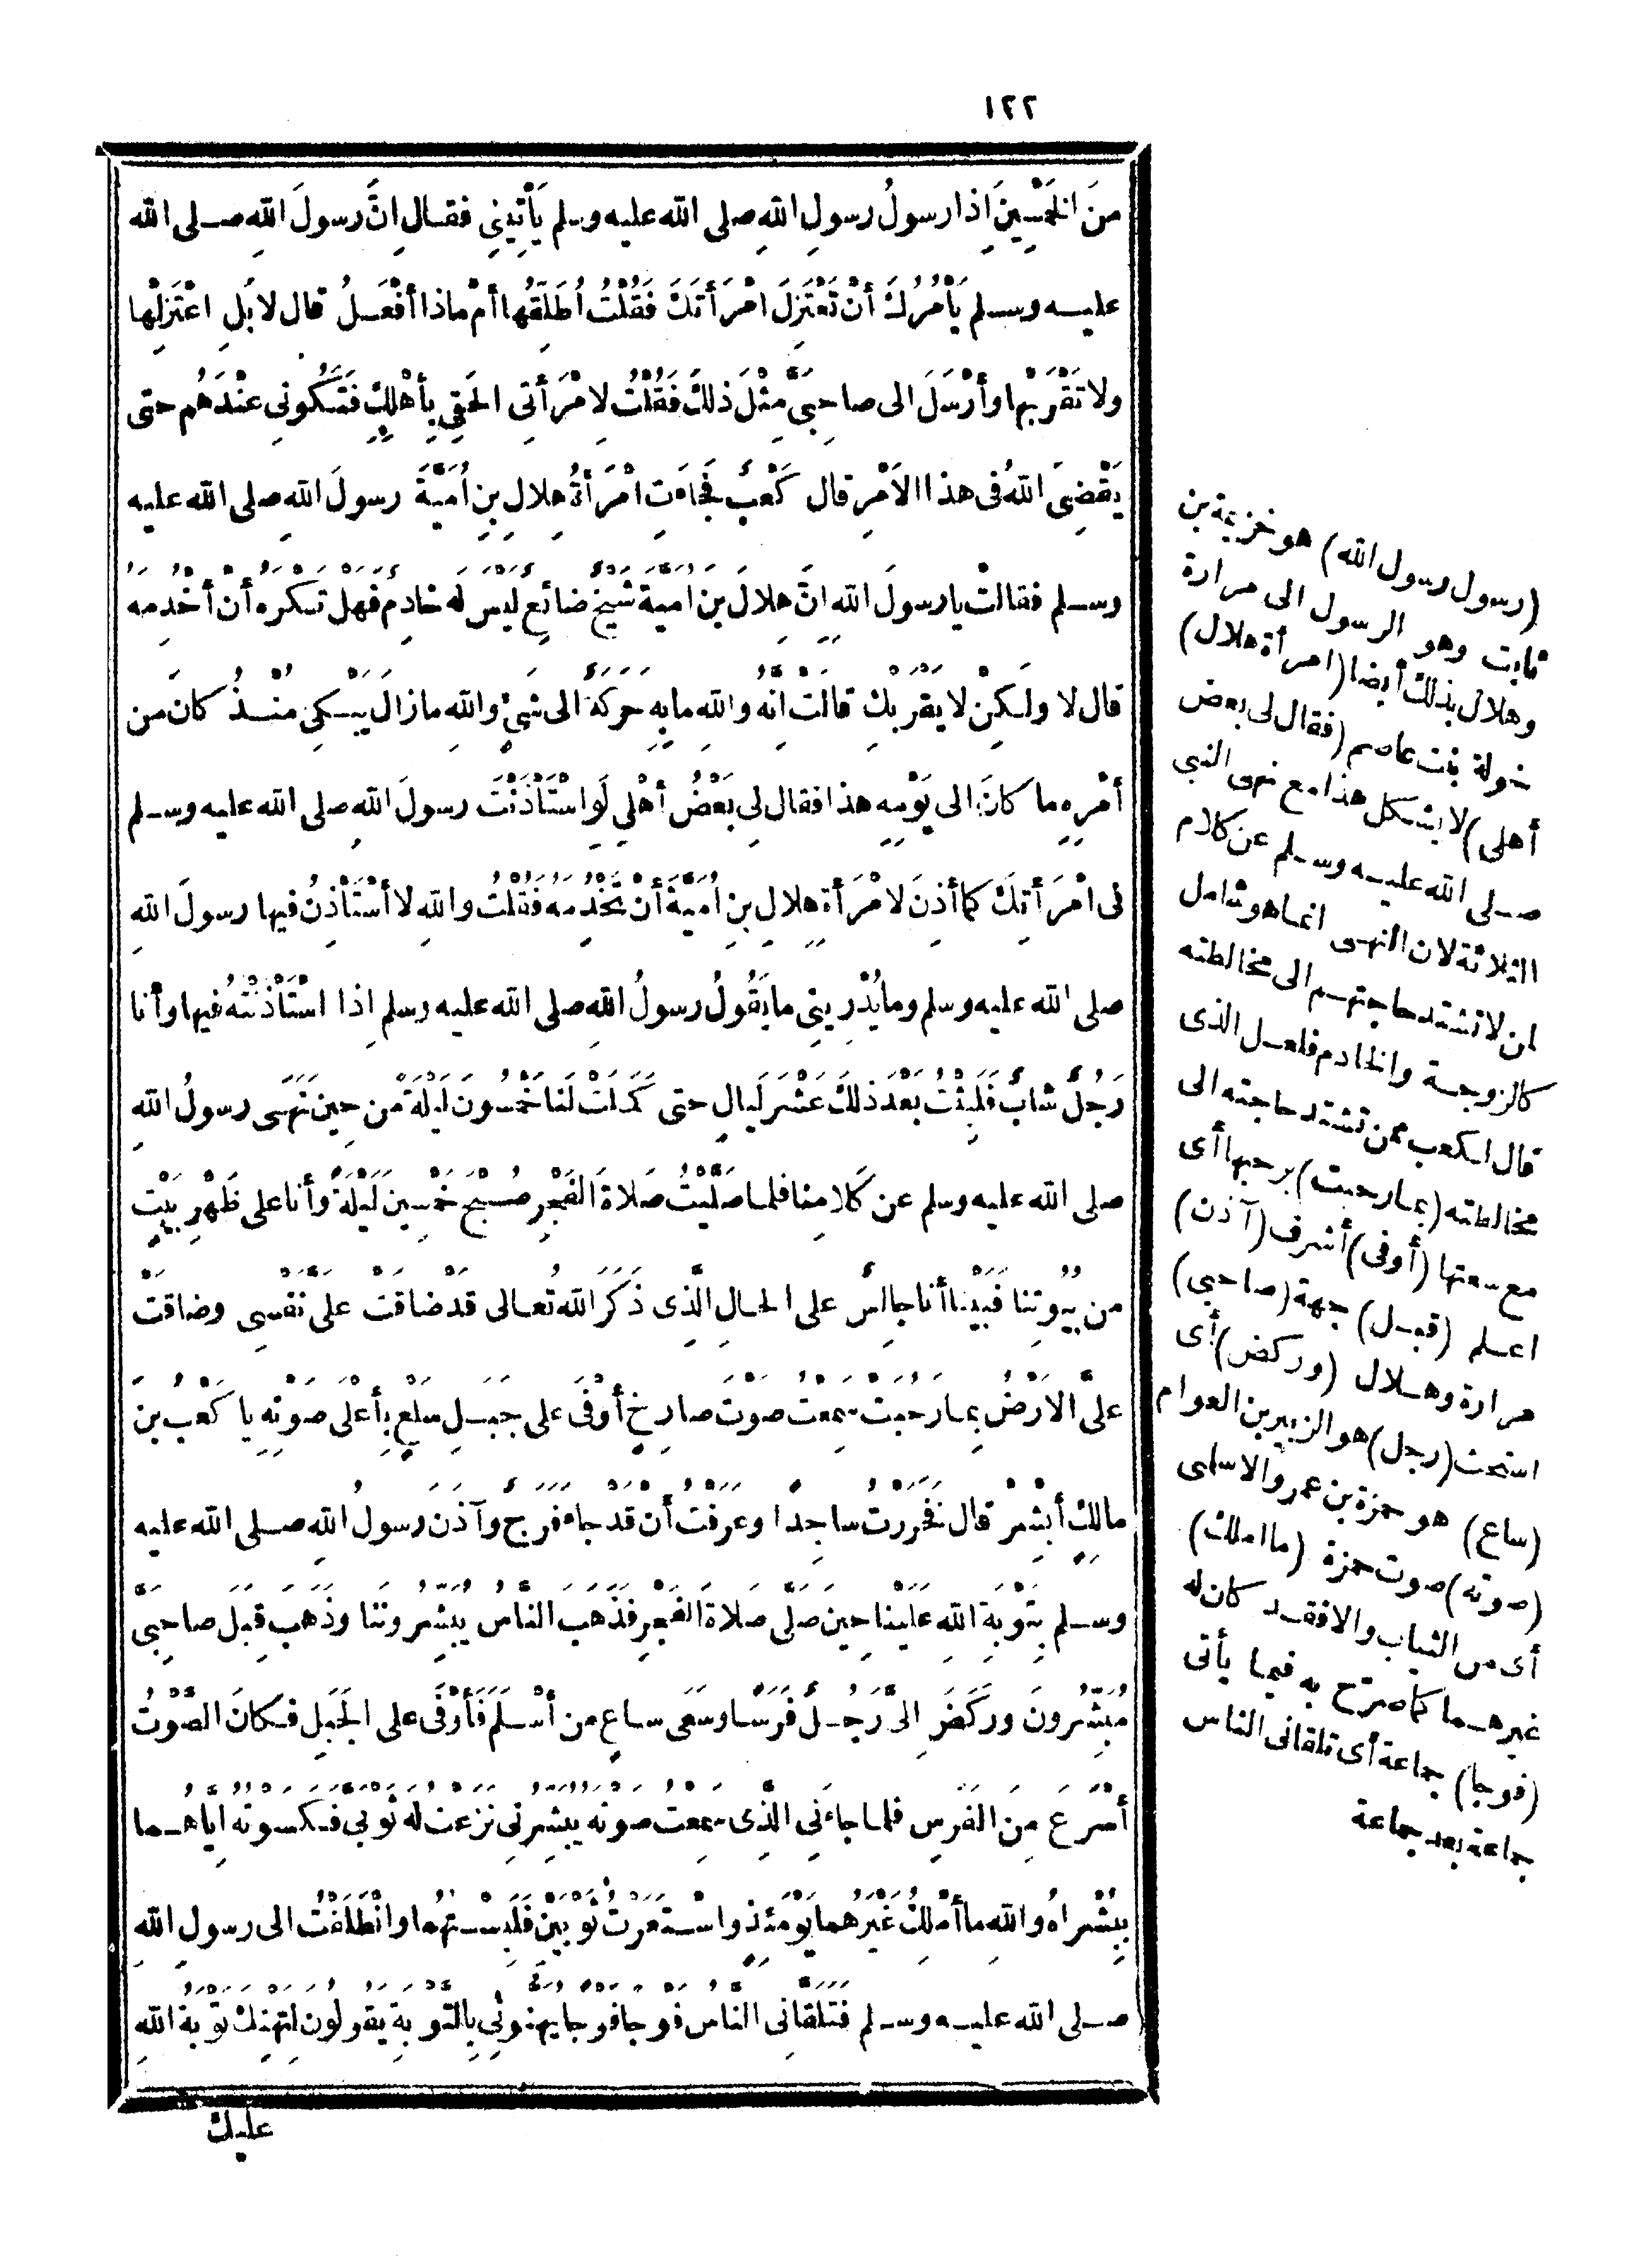 ١٢٢
منَ الخَمْسِينَ اِذا رسولُ رسولِ اللهِ صلى الله عليه وسلم يَأْتِينِى فقال اِنَّ رسولَ اللهِ صلى الله
عليه وسلم يَأْمُرُكَ أنْ تَعْتَزِلَ امْرَأتَكَ فَقُلْتُ اُطَلِّقُها أمْ ماذا أفْعَلُ قال لا بَلِ اعْتَزِلْها
ولا تَقْرَبْها وأرْسَلَ الى صاحِبَىَّ مِثْلَ ذلكَ فَقُلْتُ لِامْرَأتِى الحَقِى بِأهْلِكِ فَتَكُونِى عِنْدَهُم حتى
يَقْضِىَ اللهُ فى هذا الاَمْرِ قال كَعْبٌ فَجَاءَتِ امْرَأةُ هِلالِ بنِ اُمَيَّةَ رسولَ اللهِ صلى الله عليه
وسلم فقالتْ يا رسولَ اللهِ اِنَّ هِلالَ بنَ اُمَيَّةَ شَيْخٌ ضائِعٌ ليسَ له خادِمٌ فهل تَكْرَهُ أنْ أخْدُمَهُ
قال لا ولكِنْ لا يَقْرَبْكِ قالَتْ اِنَّهُ واللهِ ما بِهِ حَرَكَةٌ الى شَىْءٍ واللهِ ما زالَ يَبْكِى مُنْذُ كانَ من
أمْرِهِ ما كانَ الى يَوْمِهِ هذا فقال لِى بَعْضُ أهْلِى لَوِ اسْتَأْذَنْتَ رسولَ اللهِ صلى الله عليه وسلم
فى امْرَأتِكَ كما أذِنَ لِامْرَأةِ هِلالِ بنِ اُمَيَّةَ أنْ تَخْدُمَهُ فَقُلْتُ واللهِ لا أسْتَأْذِنُ فيها رسولَ اللهِ
صلى الله عليه وسلم وما يُدْرِينِى ما يَقُولُ رسولُ اللهِ صلى الله عليه وسلم اِذا اسْتَأْذَنْتُهُ فيها وأنا
رَجُلٌ شابٌّ فَلَبِثْتُ بَعْدَ ذلكَ عَشْرَ لَيالٍ حتى كَمَلَتْ لَنا خَمْسُونَ لَيْلَةً من حِينَ نَهَى رسولُ اللهِ
صلى الله عليه وسلم عن كَلامِنا فلما صَلَّيْتُ صَلاةَ الفَجْرِ صُبْحَ خَمْسِينَ لَيْلَةً وأنا على ظَهْرِ بَيْتٍ
من بُيُوتِنا فَبَيْنا أنا جالِسٌ على الحالِ الَّذِى ذَكَرَ اللهُ تعالى قَدْ ضاقَتْ علىَّ نَفْسِى وضاقَتْ
علىَّ الاَرْضُ بِما رَحُبَتْ سَمِعْتُ صَوْتَ صارِخٍ أوْفَى على جَبَلِ سَلْعٍ بِأعْلَى صَوْتِهِ يا كَعْبُ بنَ
مالِكٍ أبْشِرْ قال فَخَرَرْتُ ساجِدًا وعَرَفْتُ أنْ قَدْ جاءَ فَرَجٌ وآذَنَ رسولُ اللهِ صلى الله عليه
وسلم بِتَوْبَةِ اللهِ عَلَيْنا حِينَ صَلَّى صَلاةَ الفَجْرِ فَذَهَبَ الناسُ يُبَشِّرُونَنا وذَهَبَ قِبَلَ صاحِبَىَّ
مُبَشِّرُونَ ورَكَضَ اِلَىَّ رَجُلٌ فَرَسًا وسَعَى ساعٍ من أسْلَمَ فَأَوْفَى على الجَبَلِ فكانَ الصَّوْتُ
أسْرَعَ مِنَ الفَرَسِ فلما جاءَنِى الَّذِى سَمِعْتُ صَوْتَهُ يُبَشِّرُنِى نَزَعْتُ له ثَوْبَىَّ فَكَسَوْتُهُ اِيَّاهُما
بِبُشْراهُ واللهِ ما أمْلِكُ غَيْرَهُما يَوْمَئِذٍ واسْتَعَرْتُ ثَوْبَيْنِ فَلَبِسْتُهُما وانْطَلَقْتُ الى رسولِ اللهِ
صلى الله عليه وسلم فَتَلَقَّانِى النَّاسُ فَوْجًا فَوْجًا يُهَنُّونِى بِالتَّوْبَةِ يَقُولُونَ لِتَهْنِكَ تَوْبَةُ اللهِ
عليك
(رسول رسول الله) هو خزيمة بن
ثابت وهو الرسول الى مرارة
وهلال بذلك أيضا (امرأة هلال)
خولة بنت عاصم (فقال لى بعض
أهلى) لا يشكل هذا مع نهى النبى
صلى الله عليه وسلم عن كلام
الثلاثة لان النهى انما هو شامل
لمن لا تشتد حاجتهم الى مخالطته
كالزوجة والخادم فلعل الذى
قال لكعب ممن تشتد حاجته الى
مخالطته (بما رحبت) برحبها أى
مع سعتها (أوفى) أشرف (آذن)
اعلم (قبل) جهة (صاحبى)
مرارة وهلال (وركض) أى
استحث (رجل) هو الزبير بن العوام
(ساع) هو حمزة بن عمرو الاسلمى
(صوته) صوت حمزة (ما املك)
أى من الثياب والا فقد كان له
غيرهما كما صرّح به فيما يأتى
(فوجا) جماعة أى تلقانى الناس
جماعة بعد جماعة